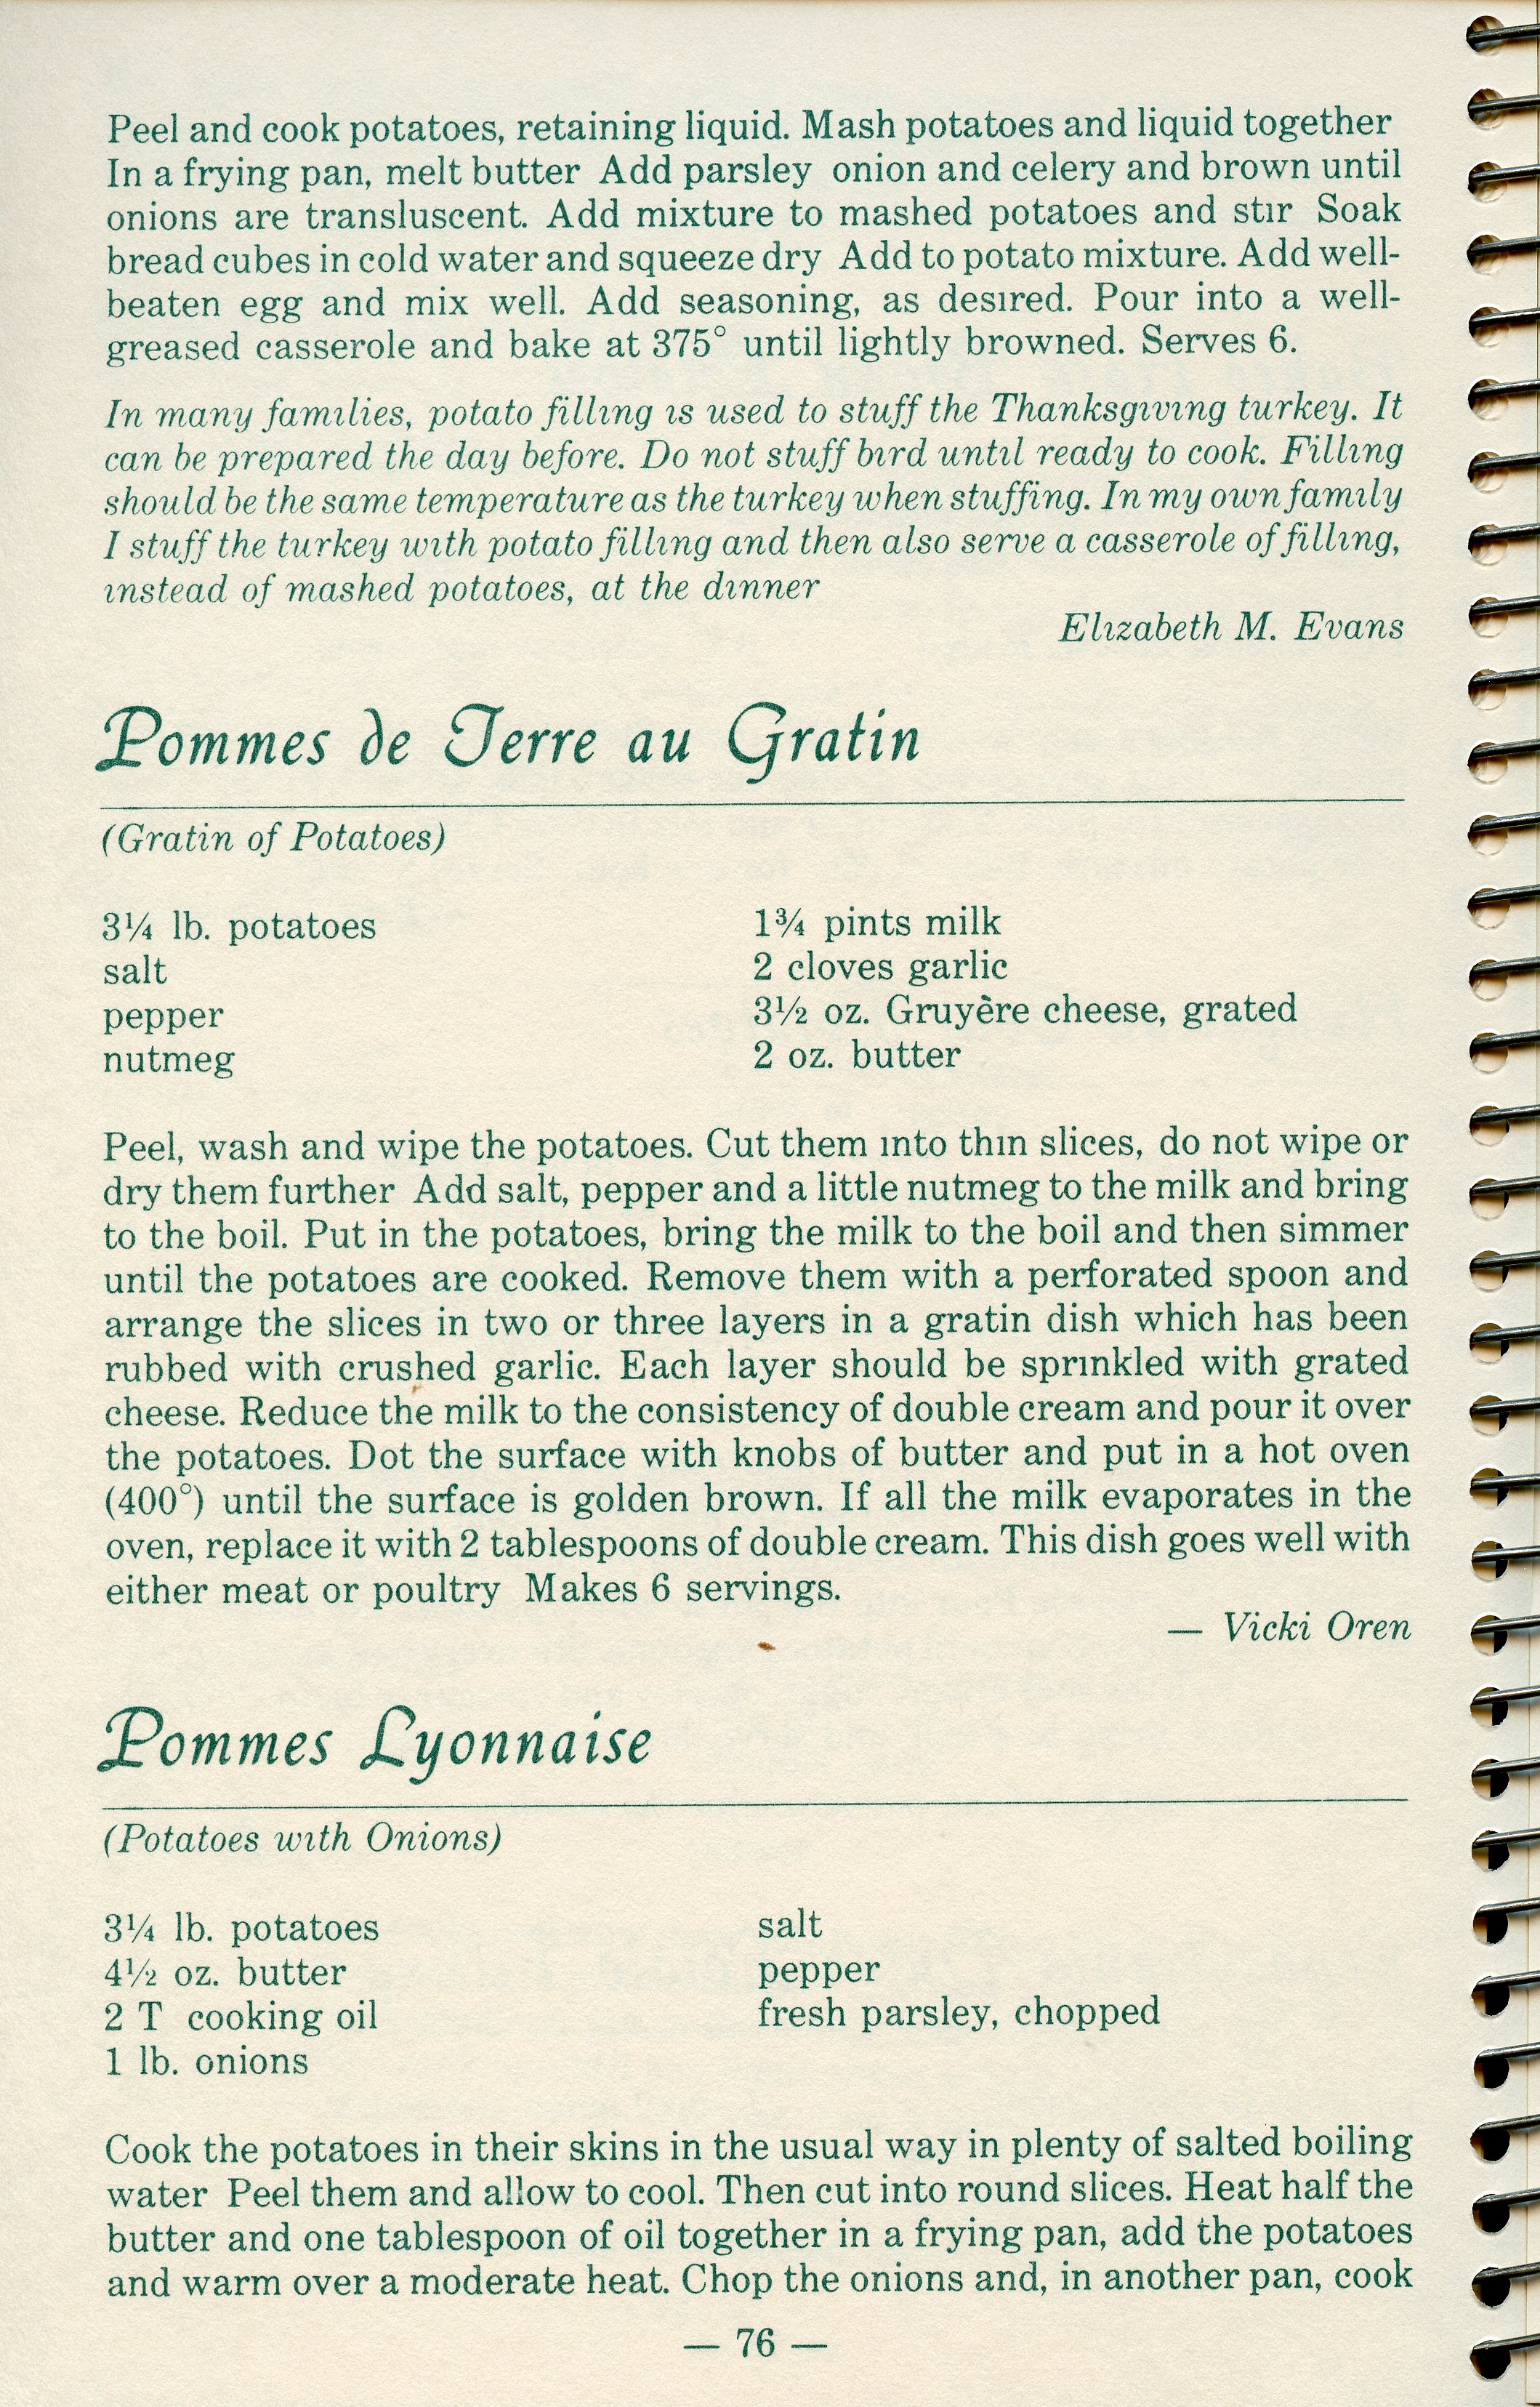 Peel and cook potatoes, retaining liquid. Mash potatoes and liquid together
In a frying pan, melt butter Add parsley onion and celery and brown until
onions are transluscent. Add mixture to mashed potatoes and stir Soak
bread cubes in cold water and squeeze dry Add to potato mixture. Add well-
beaten egg and mix well. Add seasoning, as desired. Pour into a well-
greased casserole and bake at 375° until lightly browned. Serves 6.
In many families, potato filling is used to stuff the Thanksgiving turkey. It
can be prepared the day before. Do not stuff bird until ready to cook. Filling
should be the same temperature as the turkey when stuffing. In my own family
I stuff the turkey with potato filling and then also serve a casserole of filling,
instead of mashed potatoes, at the dinner
Elizabeth M. Evans
Pommes de Terre au Gratin
(Gratin of Potatoes)
3¼ lb. potatoes
salt
pepper
nutmeg
1¾ pints milk
2 cloves garlic
3½ oz. Gruyère cheese, grated
2 oz. butter
Peel, wash and wipe the potatoes. Cut them into thin slices, do not wipe or
dry them further Add salt, pepper and a little nutmeg to the milk and bring
to the boil. Put in the potatoes, bring the milk to the boil and then simmer
until the potatoes are cooked. Remove them with a perforated spoon and
arrange the slices in two or three layers in a gratin dish which has been
rubbed with crushed garlic. Each layer should be sprinkled with grated
cheese. Reduce the milk to the consistency of double cream and pour it over
the potatoes. Dot the surface with knobs of butter and put in a hot oven
(400°) until the surface is golden brown. If all the milk evaporates in the
oven, replace it with 2 tablespoons of double cream. This dish goes well with
either meat or poultry Makes 6 servings.
— Vicki Oren
Pommes Lyonnaise
(Potatoes with Onions)
3¼ lb. potatoes
4½ oz. butter
2 T cooking oil
1 lb. onions
salt
pepper
fresh parsley, chopped
Cook the potatoes in their skins in the usual way in plenty of salted boiling
water Peel them and allow to cool. Then cut into round slices. Heat half the
butter and one tablespoon of oil together in a frying pan, add the potatoes
and warm over a moderate heat. Chop the onions and, in another pan, cook
— 76 —